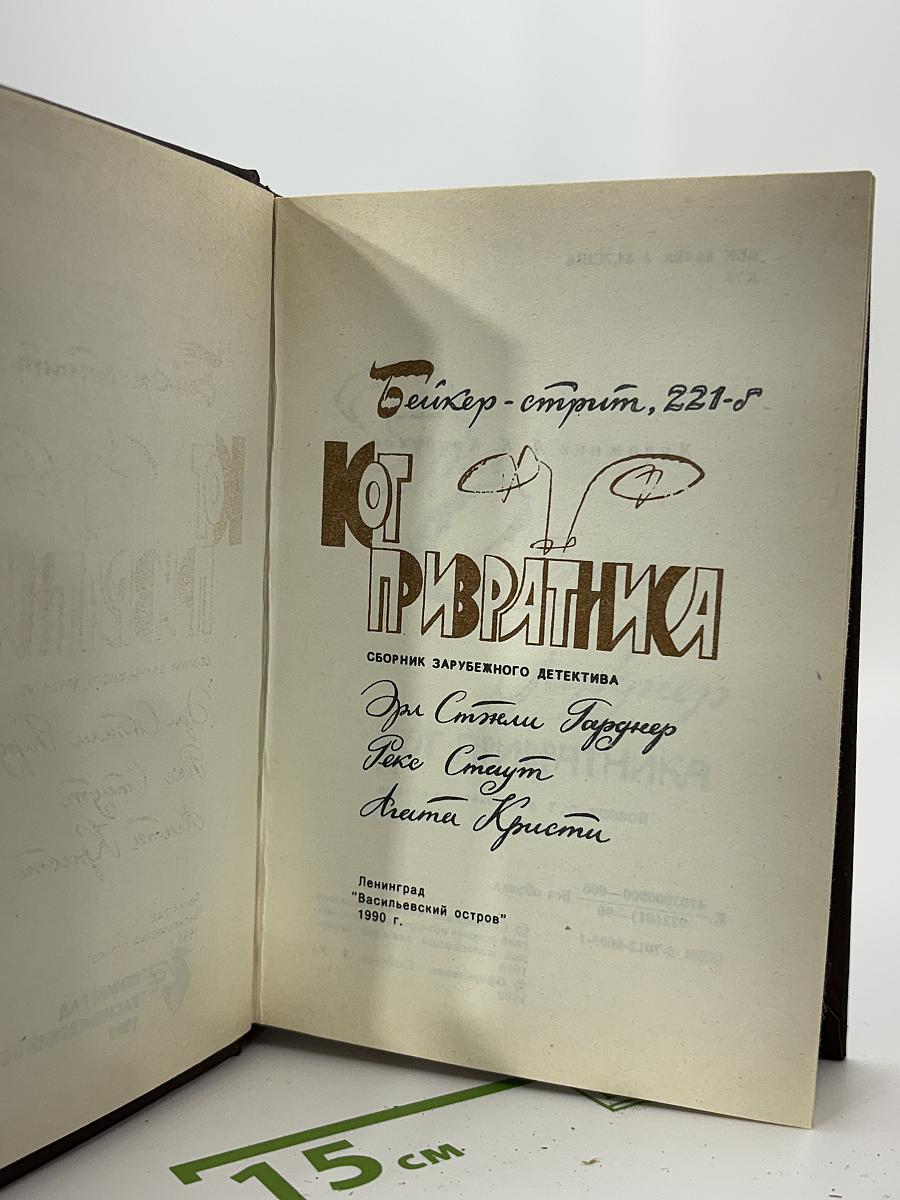 Бейкер-стрит, 221-б
КОТ
ПРИВРАТНИКА
СБОРНИК ЗАРУБЕЖНОГО ДЕТЕКТИВА
Эрл Стэнли Гарднер
Рекс Стаут
Агата Кристи
Ленинград
"Васильевский остров"
1990 г.
15 см